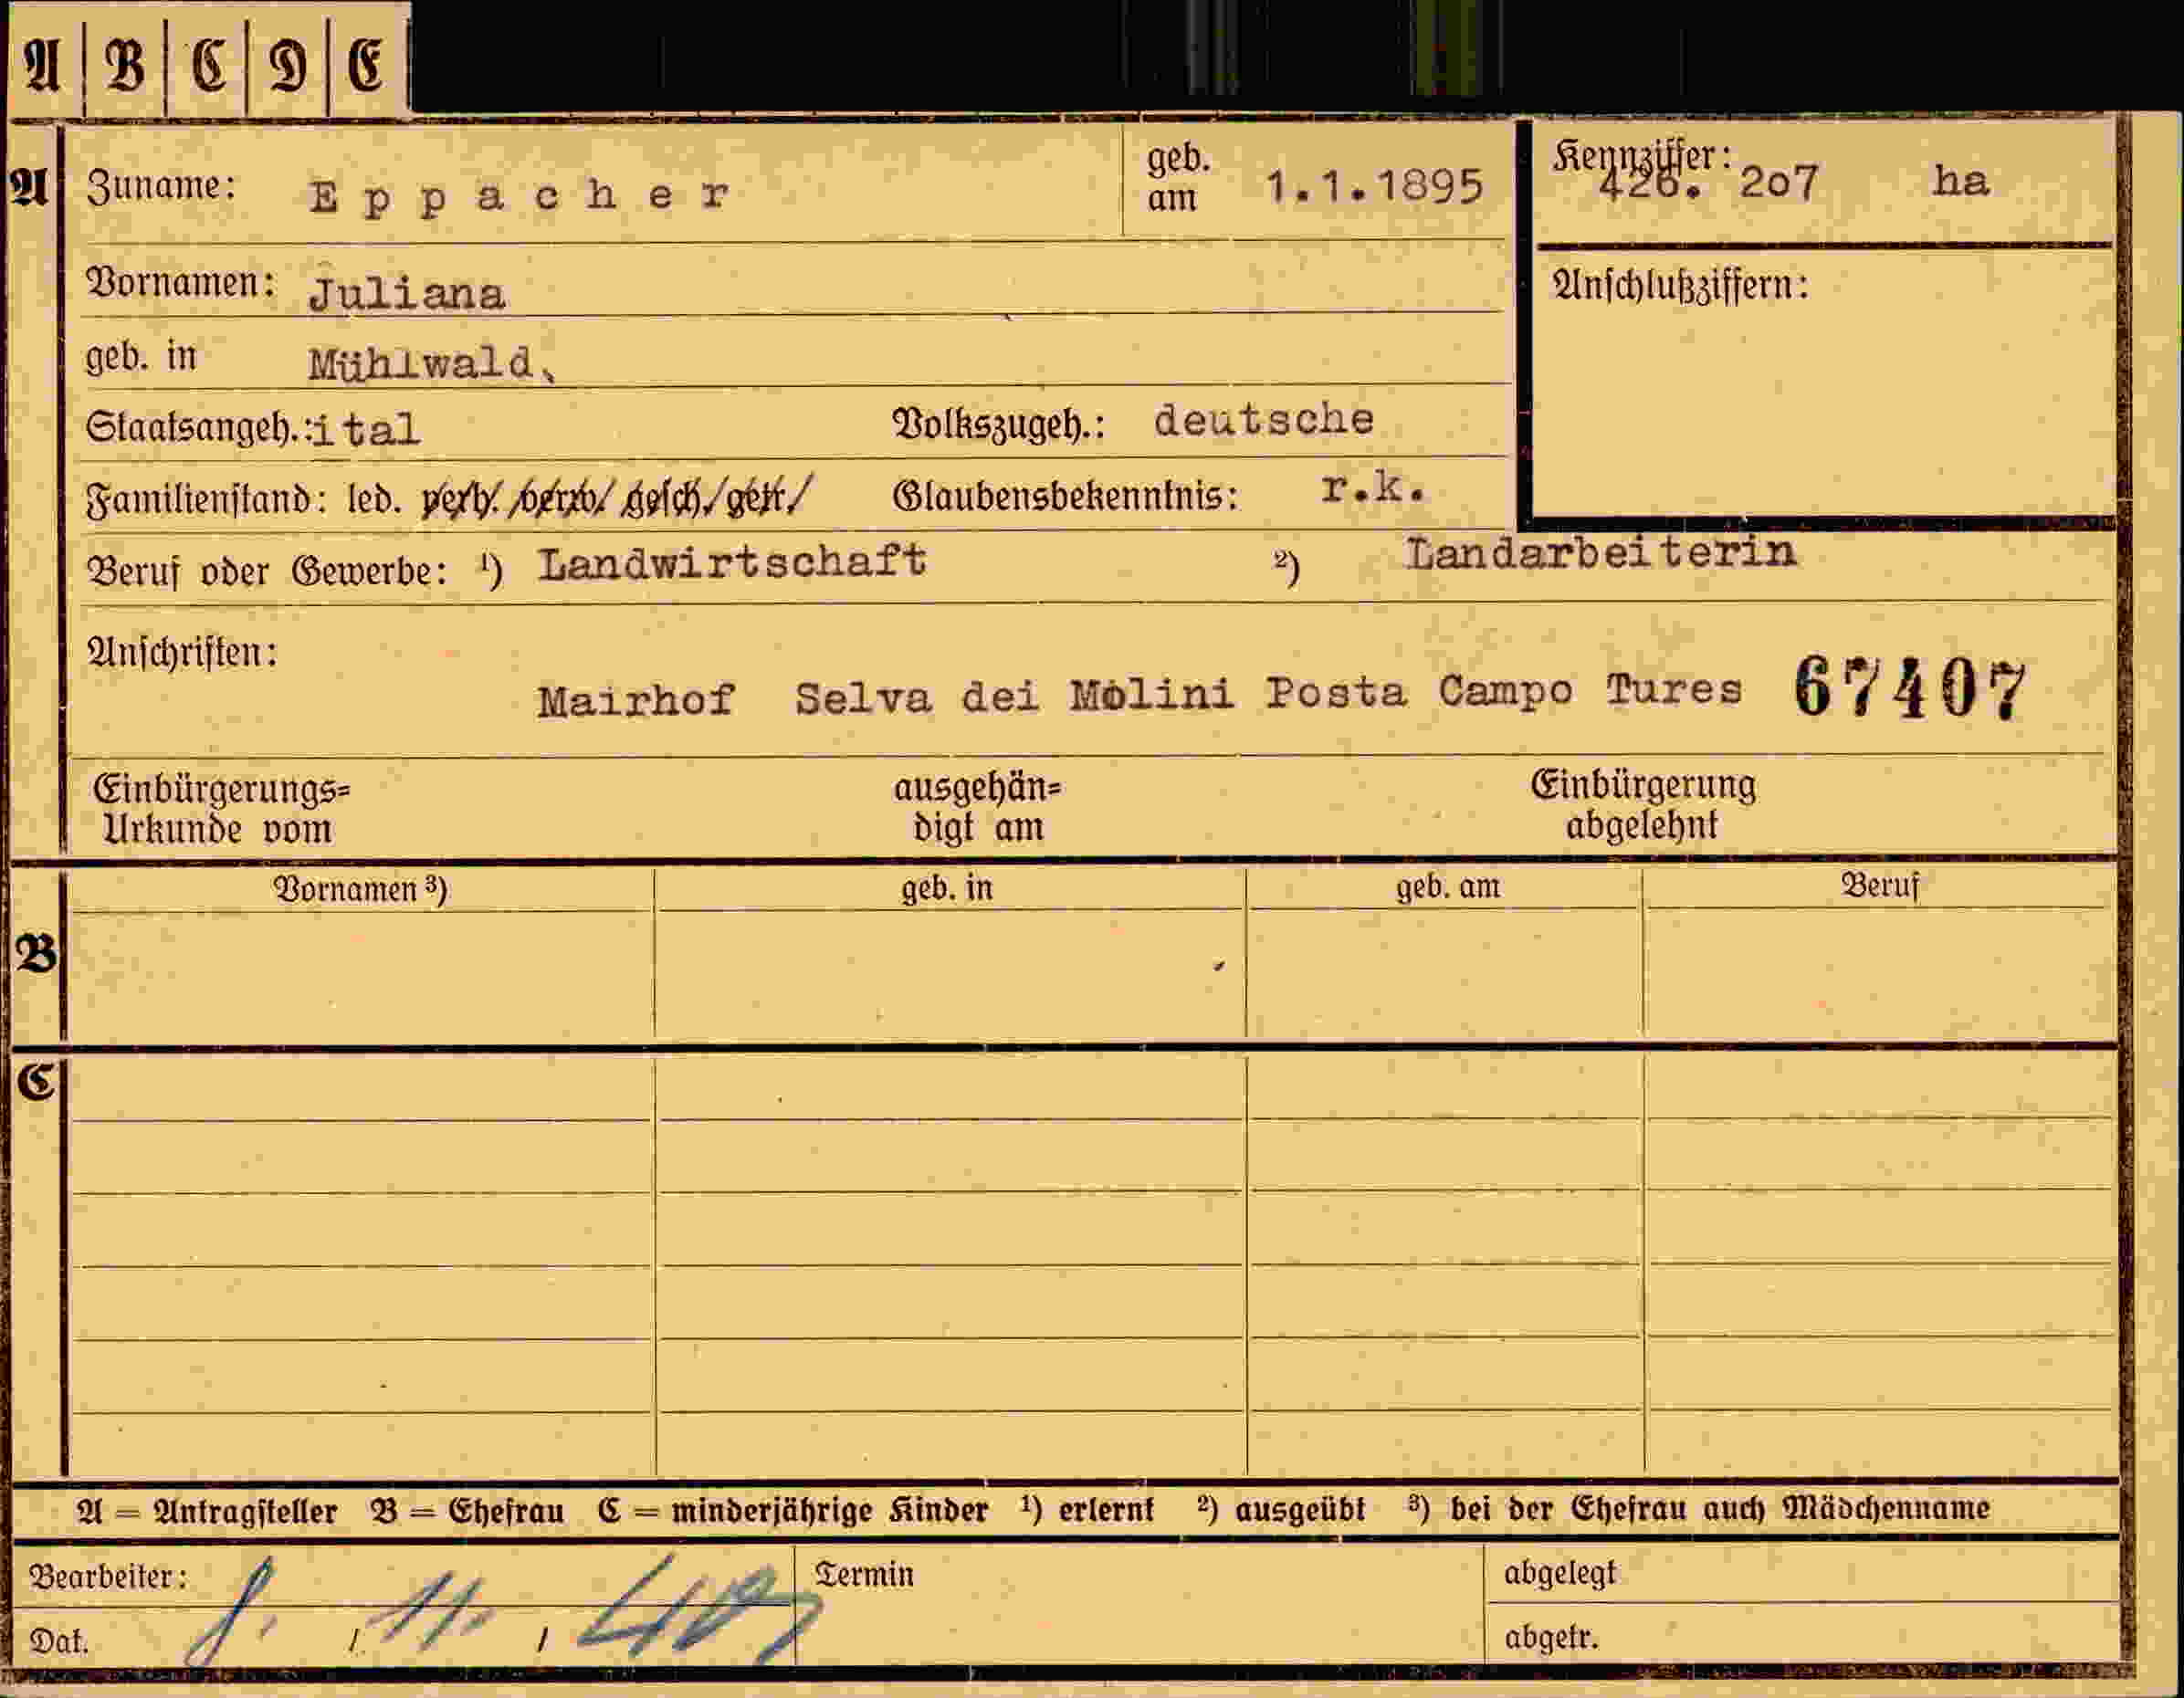 A B C D E
A Zuname: Eppacher geb. am 1.1.1895 Kennziffer: 426. 2o7 ha
Vornamen: Juliana Anschlußziffern:
geb. in Mühlwald,
Staatsangeh.: ital Volkszugeh.: deutsche
Familienstand: led. verh. verw. gesch. getr. Glaubensbekenntnis: r.k.
Beruf oder Gewerbe: ¹) Landwirtschaft ²) Landarbeiterin
Anschriften:
Mairhof Selva dei Molini Posta Campo Tures 67407
Einbürgerungs= ausgehän= Einbürgerung
Urkunde vom digt am abgelehnt
Vornamen ³) geb. in geb. am Beruf
B
C
A = Antragsteller B = Ehefrau C = minderjährige Kinder ¹) erlernt ²) ausgeübt ³) bei der Ehefrau auch Mädchenname
Bearbeiter: Termin abgelegt
Dat. abgetr.